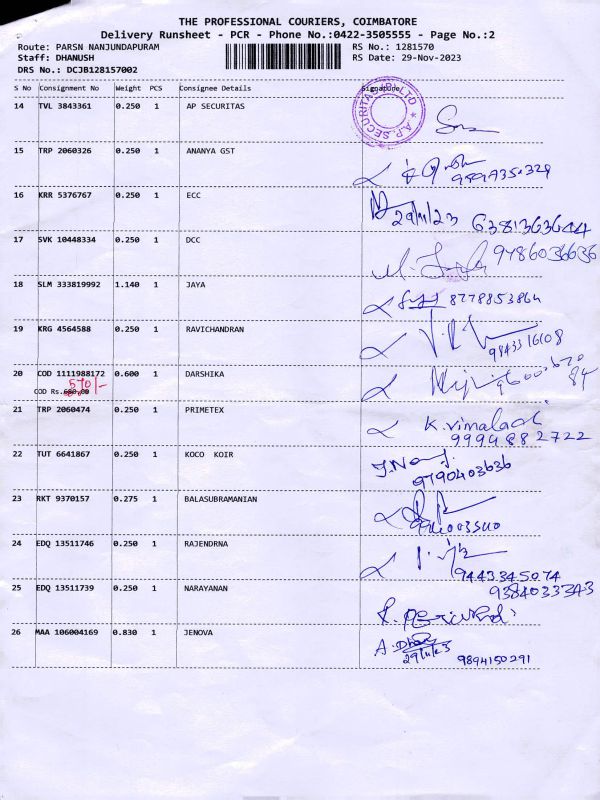 THE PROFESSIONAL COURIERS, COIMBATORE
Delivery Runsheet - PCR - Phone No.:0422-3505555 - Page No.:2
Route: PARSN NANJUNDAPURAM
RS No.: 1281570
Staff: DHANUSH
RS Date: 29-Nov-2023
DRS No.: DCJB128157002
S No Consignment No Weight PCS Consignee Details Signature/
14 TVL 3843361 0.250 1 AP SECURITAS
A.P. SECURITAS (P) LTD
15 TRP 2060326 0.250 1 ANANYA GST
16 KRR 5376767 0.250 1 ECC
29/11/23 6381363644
17 SVK 10448334 0.250 1 DCC
9486036636
18 SLM 333819992 1.140 1 JAYA
8778853864
19 KRG 4564588 0.250 1 RAVICHANDRAN
9843316108
20 COD 1111988172 0.600 1 DARSHIKA
570/-
COD Rs.
21 TRP 2060474 0.250 1 PRIMETEX K. Vimaladi
9994882722
22 TUT 6641867 0.250 1 KOCO KOIR
9790403636
23 RKT 9370157 0.275 1 BALASUBRAMANIAN
24 EDQ 13511746 0.250 1 RAJENDRNA
9443345074
25 EDQ 13511739 0.250 1 NARAYANAN 9384033343
26 MAA 106004169 0.830 1 JENOVA A. Dhan
29/11/23 9894150291